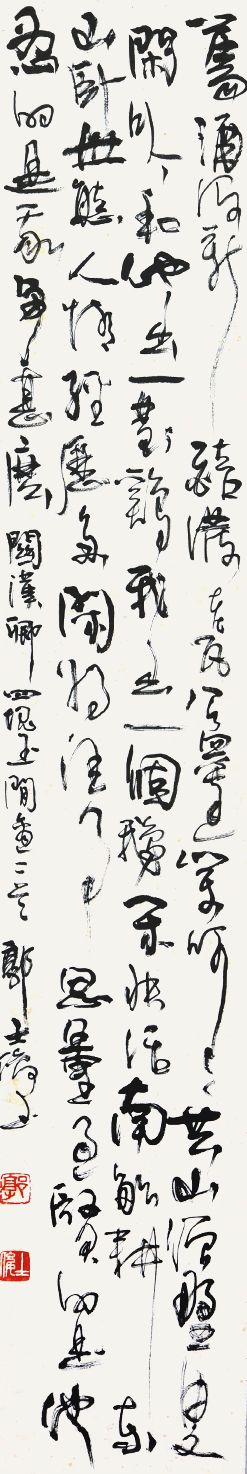 舊酒沒新醅潑老瓦盆邊笑呵呵共山僧野叟
閑吟和他出一對鷄我出一個鵝閑快活南畝耕東
山卧世態人情經歷多閑將往事思量過賢的是他
愚的是我爭甚麽 關漢卿四塊玉閒適二首 郭士